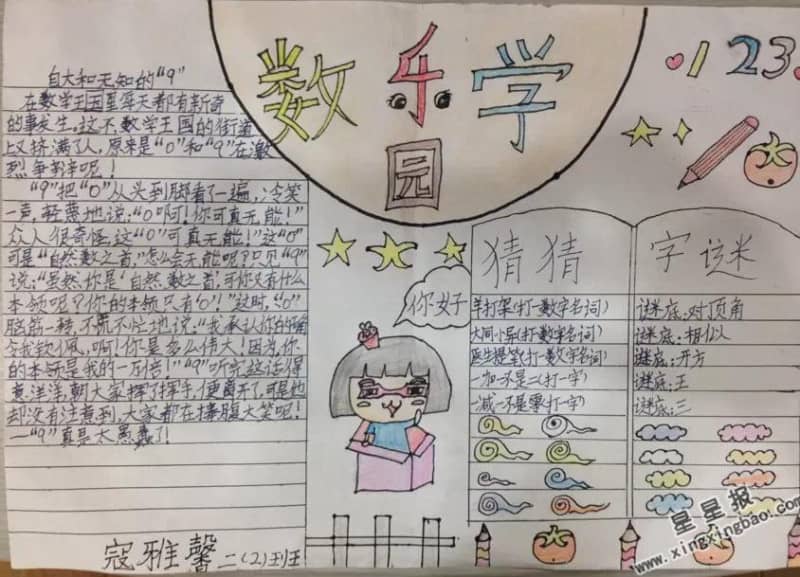 数学
乐
园
1 2 3
自大和无知的“9”
在数学王国里每天都有新奇
的事发生,这不,数学王国的街道
上又挤满了人,原来是“0”和“9”在激
烈争斗呢!
“9”把“0”从头到脚看了一遍,冷笑
一声,轻蔑地说:“0啊!你可真无能!”
众人很奇怪,这“0”可真无能!这“0”
可是“自然数之首”怎么会无能呢?只见“9”
说:“虽然你是‘自然数之首’,可你又有什么
本领呢?你的本领只有‘0’!”这时,“0”
脑筋一转,不慌不忙地说:“我承认你的
令我钦佩,啊!你是多么伟大!因为,你
的本领是我的一万倍!”“9”听完这话得
意洋洋,朝大家挥了挥手,便离开了,可是他
却没有注意到,大家都在捧腹大笑呢!
—“9”真是太愚蠢了!
寇雅馨 二(2)班
你好
猜猜
羊打架(打一数字名词)
大同小异(打一数学名词)
医生提笔(打一数字名词)
一加一不是二(打一字)
一减一不是零(打一字)
字谜
谜底:对顶角
谜底:相似
谜底:开方
谜底:王
谜底:三
星星报
www.xingxingbao.com